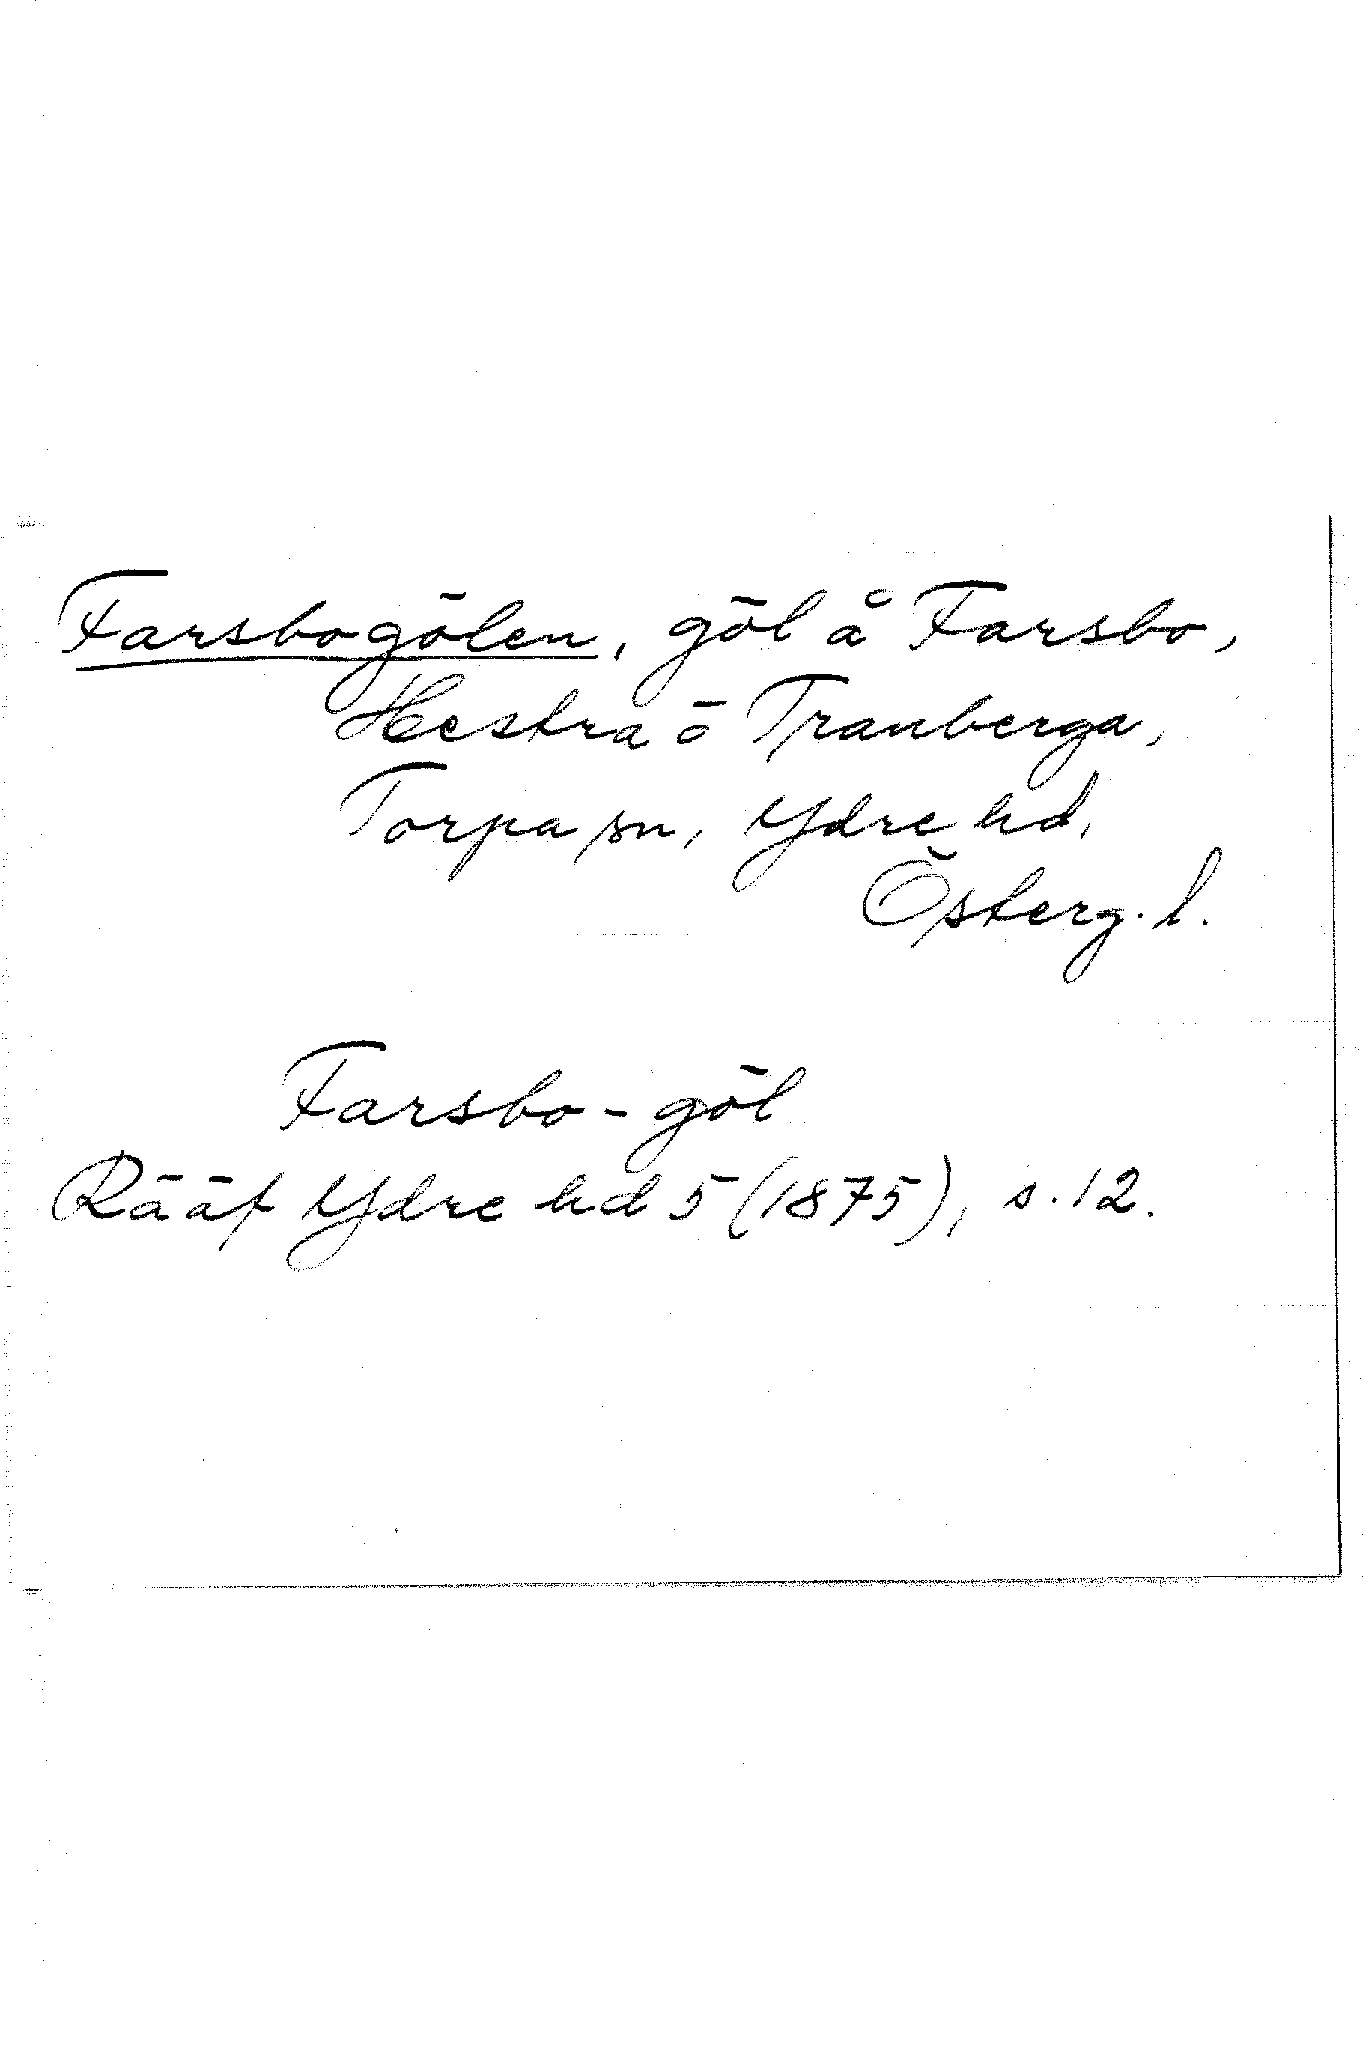 Farsbogölen, göl å Farsbo,
Hestra ö Tranberga,
Torpa sn, Ydre hd,
Österg. l.
Farsbo-göl
Rääf Ydre hd 5 (1875), s. 12.